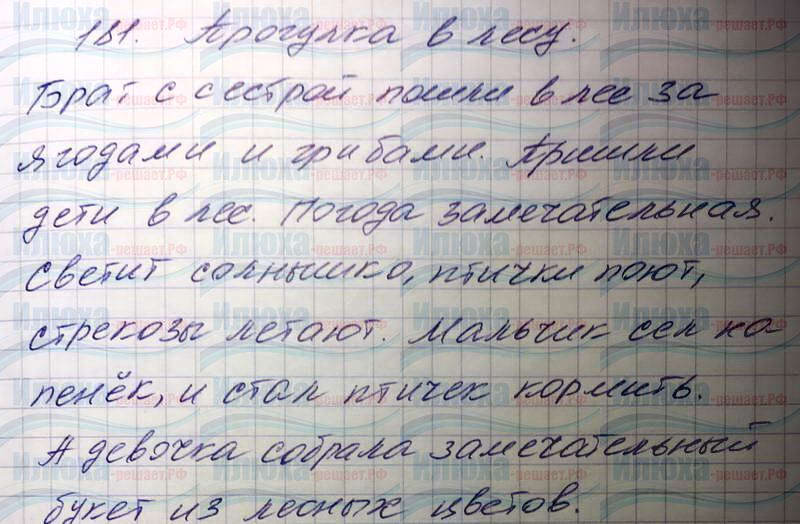 181. Прогулка в лесу.
Брат с сестрой пошли в лес за
ягодами и грибами. Пришли
дети в лес. Погода замечательная.
Светит солнышко, птички поют,
стрекозы летают. Мальчик сел на
пенёк, и стал птичек кормить.
А девочка собрала замечательный
букет из лесных цветов.